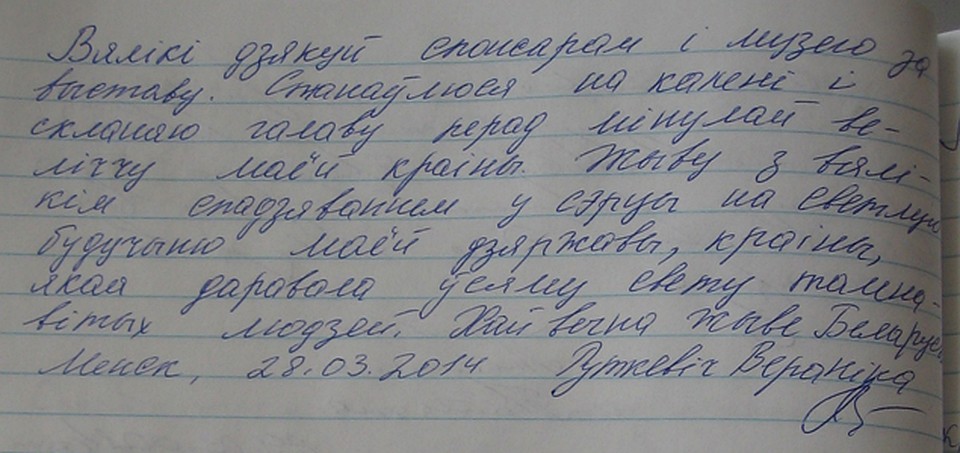 Вялікі дзякуй спонсарам і музею за
выставу. Станаўлюся на калені і
скланяю галаву перад мінулай ве-
ліччу маёй краіны. Жыву з вялі-
кім спадзяваннем у сэрцы на светлую
будучыню маёй дзяржавы, краіны,
якая даравала ўсяму свету тална-
вітых людзей. Хай вечна жыве Беларусь
Менск, 28.03.2014 Руткевіч Вераніка